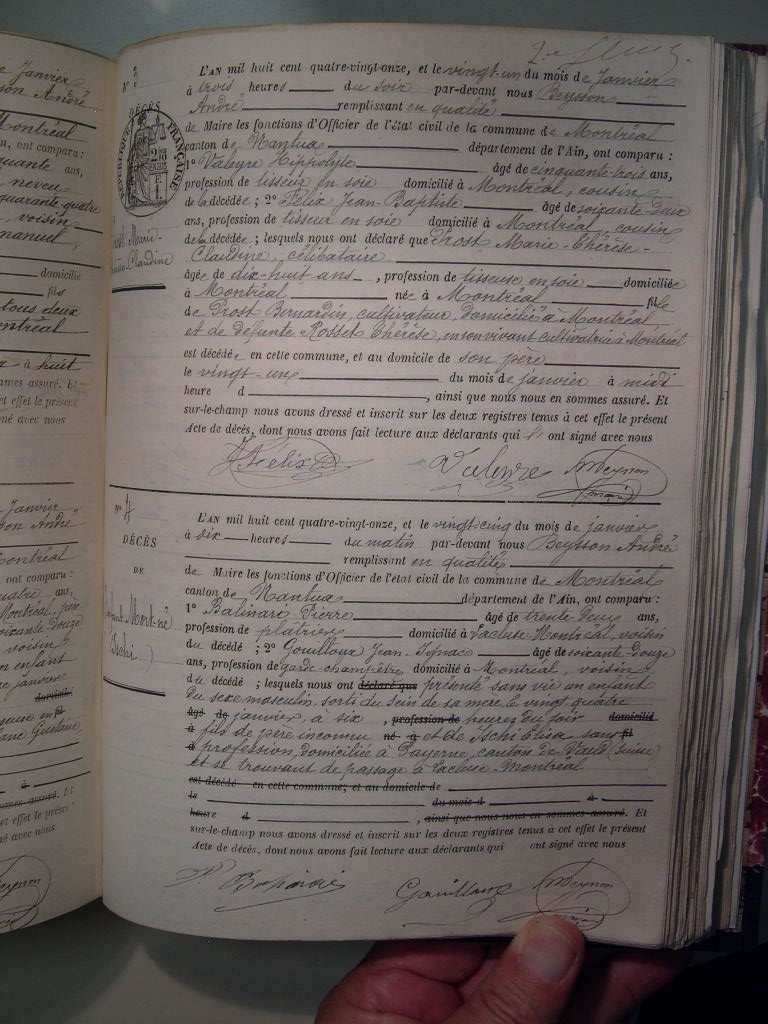 e Janvier
son André
Montréal
ont comparu :
quante ans,
neveu
quarante quatre
voisin
manuel,
domicilié
fils
tous deux
ontréal
à huit
mmes assuré. Et
et effet le présent
gné avec nous
Janvier
on André
ontréal
ont comparu :
ans,
Montréal, père
soixante douze
voisin
enfant
janvier
domicilié
Gustave
sommes assuré. Et
cet effet le présent
avec nous
Beysson
N°
DÉCÈS
RÉPUBLIQUE FRANÇAISE
Prost Marie
Claudine
L'AN mil huit cent quatre-vingt-onze, et le vingt-un du mois de Janvier
à trois heures du soir par-devant nous Beysson
André remplissant en qualité
de Maire les fonctions d'Officier de l'état civil de la commune de Montréal
canton de Nantua département de l'Ain, ont comparu :
1° Valeyre Hippolyte âgé de cinquante-trois ans,
profession de tisseur en soie domicilié à Montréal, cousin
de la décédée ; 2° Félix Jean-Baptiste âgé de soixante-deux
ans, profession de tisseur en soie domicilié à Montréal, cousin
de la décédée ; lesquels nous ont déclaré que Prost Marie-Thérèse-
Claudine, célibataire
âgée de dix-huit ans, profession de tisseuse en soie domiciliée
à Montréal née à Montréal fille
de Prost Bernardin, cultivateur, domicilié à Montréal
et de défunte Rosset Thérèse, en son vivant cultivatrice à Montréal
est décédée en cette commune, et au domicile de son père
le vingt-un du mois de janvier à midi
heure d , ainsi que nous nous en sommes assuré. Et
sur-le-champ nous avons dressé et inscrit sur les deux registres tenus à cet effet le présent
Acte de décès, dont nous avons fait lecture aux déclarants qui ont signé avec nous
J. Felix Valeyre Beysson
N° 4
DÉCÈS
DE
Enfant Mort-né
(Ischi...)
L'AN mil huit cent quatre-vingt-onze, et le vingt-cinq du mois de janvier
à six heures du matin par-devant nous Beysson André
remplissant en qualité
de Maire les fonctions d'Officier de l'état civil de la commune de Montréal
canton de Nantua département de l'Ain, ont comparu :
1° Balinari Pierre âgé de trente deux ans,
profession de plâtrier domicilié à Lacluse Montréal, voisin
du décédé ; 2° Gouilloux Jean-Ignace âgé de soixante douze
ans, profession de garde champêtre domicilié à Montréal, voisin
du décédé ; lesquels nous ont déclaré que présenté sans vie un enfant
du sexe masculin, sorti du sein de sa mère le vingt quatre
âgé de janvier, à six , profession de heures du soir domicilié
à fils de père inconnu né à et de Ischi Elisa sans fil
à profession, domiciliée à Payerne, canton de Vaud (Suisse)
et se trouvant de passage à Lacluse, Montréal
est décédé en cette commune, et au domicile de
le du mois d à
heure d , ainsi que nous nous en sommes assuré. Et
sur-le-champ nous avons dressé et inscrit sur les deux registres tenus à cet effet le présent
Acte de décès, dont nous avons fait lecture aux déclarants qui ont signé avec nous
Gouilloux Beysson